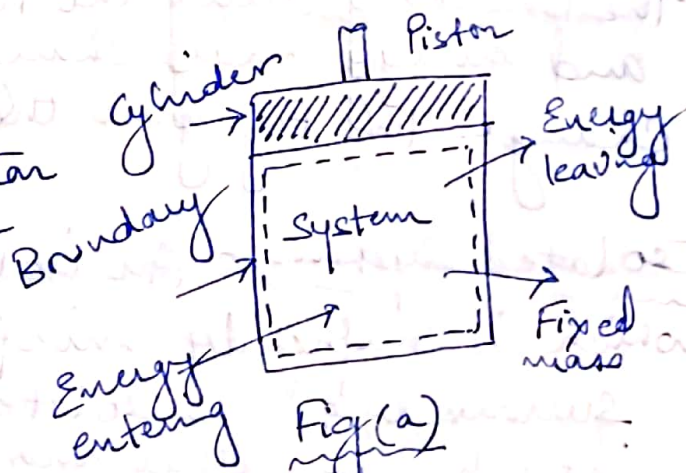 Piston
Cylinder
Energy
leaving
Boundary
System
Fixed
mass
Energy
entering
Fig (a)